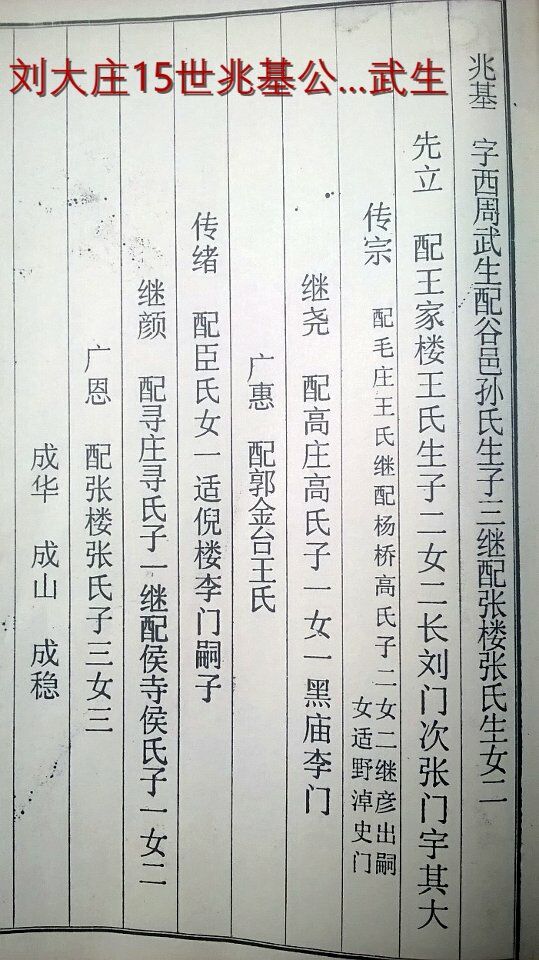 刘大庄15世兆基公...武生
兆基 字西周武生配谷邑孙氏生子三继配张楼张氏生女二
先立 配王家楼王氏生子二女二长刘门次张门宇其大
传宗 配毛庄王氏继配杨桥高氏子二女二继彦出嗣
女适野淖史门
继尧 配高庄高氏子一女一黑庙李门
广惠 配郭金台王氏
传绪 配臣氏女一适倪楼李门嗣子
继颜 配寻庄寻氏子一继配侯寺侯氏子一女二
广恩 配张楼张氏子三女三
成华 成山 成稳